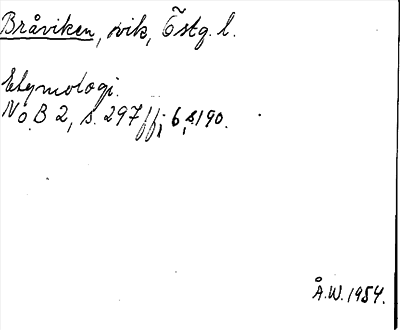 Bråviken, vik, Östg. l.
Etymologi.
NoB 2, s. 297 ff; 6, s. 190.
Å.W. 1954.